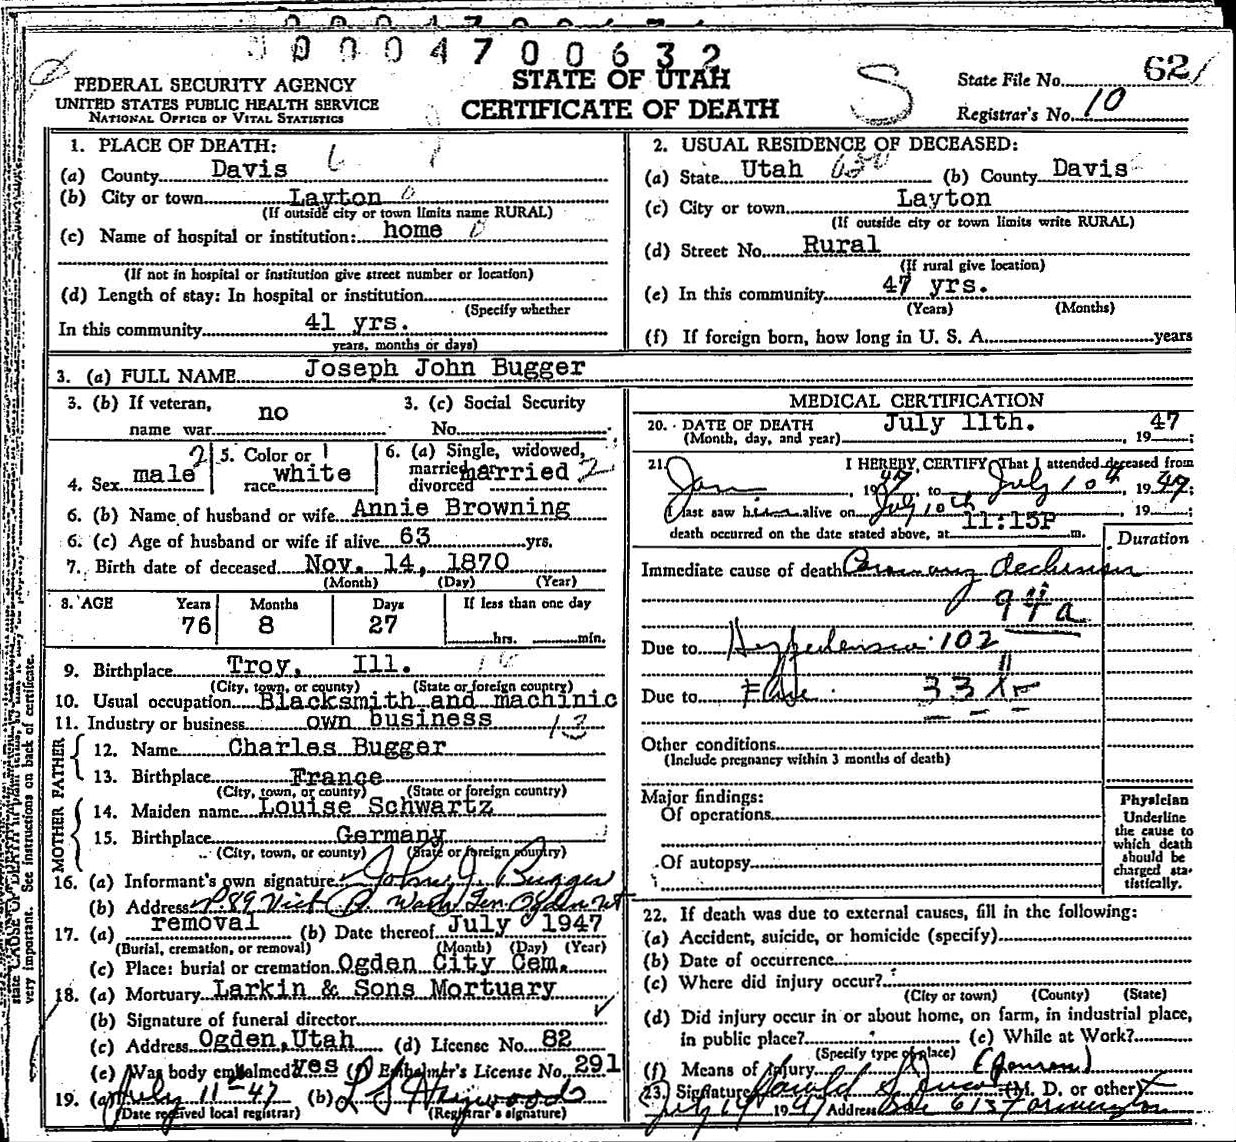 0004700632
FEDERAL SECURITY AGENCY
UNITED STATES PUBLIC HEALTH SERVICE
NATIONAL OFFICE OF VITAL STATISTICS
STATE OF UTAH
CERTIFICATE OF DEATH
S
State File No. 621
Registrar's No. 10
1. PLACE OF DEATH:
(a) County Davis
(b) City or town Layton
(If outside city or town limits name RURAL)
(c) Name of hospital or institution: home
(If not in hospital or institution give street number or location)
(d) Length of stay: In hospital or institution
(Specify whether
In this community 41 yrs.
years, months or days)
2. USUAL RESIDENCE OF DECEASED:
(a) State Utah (b) County Davis
(c) City or town Layton
(If outside city or town limits write RURAL)
(d) Street No. Rural
(If rural give location)
(e) In this community 47 yrs.
(Years) (Months)
(f) If foreign born, how long in U. S. A. years
3. (a) FULL NAME Joseph John Bugger
3. (b) If veteran, name war no
3. (c) Social Security No.
4. Sex male 2
5. Color or race white 1
6. (a) Single, widowed, married, divorced married 2
6. (b) Name of husband or wife Annie Browning
6. (c) Age of husband or wife if alive 63 yrs.
7. Birth date of deceased Nov. 14, 1870
(Month) (Day) (Year)
8. AGE Years Months Days If less than one day
76 8 27 hrs. min.
9. Birthplace Troy, Ill.
(City, town, or county) (State or foreign country)
10. Usual occupation Blacksmith and machinic
11. Industry or business own business 13
FATHER
12. Name Charles Bugger
13. Birthplace France
(City, town, or county) (State or foreign country)
MOTHER
14. Maiden name Louise Schwartz
15. Birthplace Germany
(City, town, or county) (State or foreign country)
16. (a) Informant's own signature John J. Bugger
(b) Address Ogden Ut
17. (a) removal (b) Date thereof July 1947
(Burial, cremation, or removal) (Month) (Day) (Year)
(c) Place: burial or cremation Ogden City Cem.
18. (a) Mortuary Larkin & Sons Mortuary
(b) Signature of funeral director
(c) Address Ogden, Utah (d) License No. 82
(e) Was body embalmed? yes (f) Embalmer's License No. 291
19. (a) July 11 - 47 (b)
(Date received local registrar) (Registrar's signature)
MEDICAL CERTIFICATION
20. DATE OF DEATH July 11th. 19 47
(Month, day, and year)
21. I HEREBY CERTIFY That I attended deceased from
Jan, 1947, to July 10th, 1947;
I last saw him alive on July 10th, 19
death occurred on the date stated above, at 11:15P m.
Duration
Immediate cause of death Coronary Occlusion
94a
Due to Hypertension 102
Due to
Other conditions
(Include pregnancy within 3 months of death)
Major findings:
Of operations
Of autopsy
Physician
Underline
the cause to
which death
should be
charged sta-
tistically.
22. If death was due to external causes, fill in the following:
(a) Accident, suicide, or homicide (specify)
(b) Date of occurrence
(c) Where did injury occur?
(City or town) (County) (State)
(d) Did injury occur in or about home, on farm, in industrial place,
in public place? (e) While at Work?
(Specify type of place)
(f) Means of Injury
23. Signature (M. D. or other)
July 1947 Address Box 613 Farmington
very important. See instructions on back of certificate.